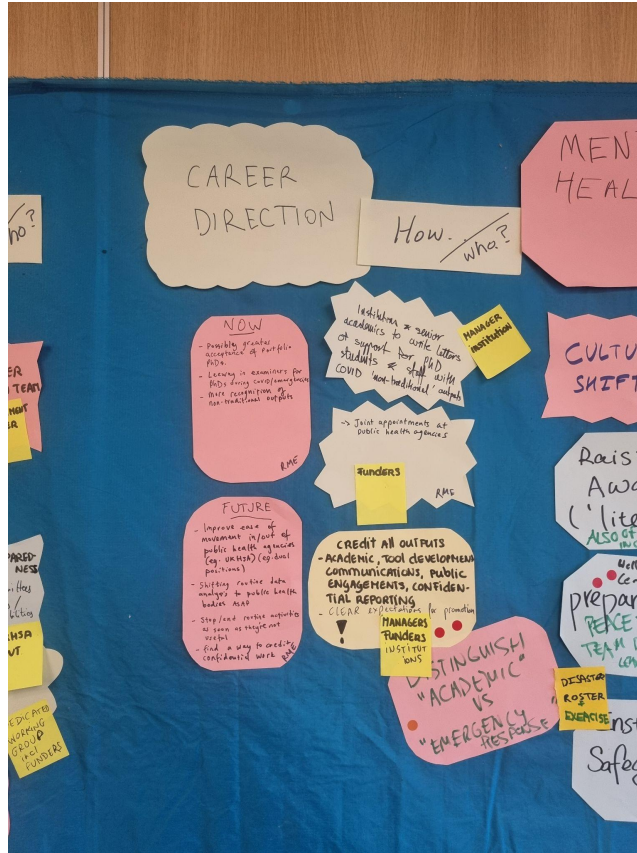 CAREER
DIRECTION
How.
who?
ho?
MEN
HEAL
NOW
- Possibly greater
acceptance of Portfolio
PhDs.
- Leeway in examiners for
PhDs during covid/emergencies
- More recognition of
non-traditional outputs
RME
Institutions & senior
academics to write letters
of support for PhD
students & staff with
COVID 'non-traditional' outputs
MANAGER
institution
CULTU
SHIFT
-> Joint appointments at
public health agencies
RME
Funders
FUTURE
- Improve ease of
movement in/out of
public health agencies
(eg. UKHSA) (eg. dual
positions)
- Shifting routine data
analysis to public health
bodies ASAP
- Stop/end routine activities
as soon as they're not
useful
- find a way to credit
confidential work
RME
CREDIT ALL OUTPUTS
- ACADEMIC, TOOL DEVELOPMENT
COMMUNICATIONS, PUBLIC
ENGAGEMENTS, CONFIDEN-
TIAL REPORTING
- CLEAR expectations for promotion
!
MANAGERS
FUNDERS
INSTITUT
IONS
DISTINGUISH
"ACADEMIC"
VS
"EMERGENCY
RESPONSE"
ER
TEAM
MENT
ER
PARED-
NESS
HSA
NT
EDICATED
WORKING
GROUP
incl
FUNDERS
Rais
Awa
('lite
ALSO OF
prepar
PEACE
TEAM
DISASTER
ROSTER
+
EXERCISE
Inst
Safeg